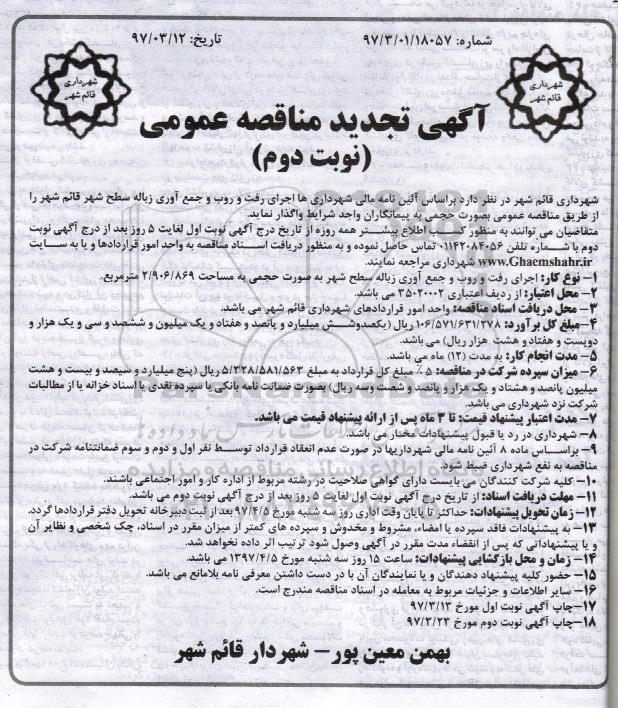 شماره: ۹۷/۳/۰۱/۱۸۰۵۷
تاریخ: ۹۷/۰۳/۱۲
شهرداری
قائم شهر
شهرداری
قائم شهر
آگهی تجدید مناقصه عمومی
(نوبت دوم)
شهرداری قائم شهر در نظر دارد براساس آئین نامه مالی شهرداری ها اجرای رفت و روب و جمع آوری زباله سطح شهر قائم شهر را
از طریق مناقصه عمومی بصورت حجمی به پیمانکاران واجد شرایط واگذار نماید.
متقاضیان می توانند به منظور کسب اطلاع بیشتر همه روزه از تاریخ درج آگهی نوبت اول لغایت ۵ روز بعد از درج آگهی نوبت
دوم با شماره تلفن ۰۱۱۴۲۰۸۴۰۵۶ تماس حاصل نموده و به منظور دریافت اسناد مناقصه به واحد امور قراردادها و یا به سایت
www.Ghaemshahr.ir شهرداری مراجعه نمایند.
۱- نوع کار: اجرای رفت و روب و جمع آوری زباله سطح شهر به صورت حجمی به مساحت ۲/۹۰۶/۸۶۹ مترمربع.
۲- محل اعتبار: از ردیف اعتباری ۳۵۰۲۰۰۰۲ می باشد.
۳- محل دریافت اسناد مناقصه: واحد امور قراردادهای شهرداری قائم شهر می باشد.
۴- مبلغ کل برآورد: ۱۰۶/۵۷۱/۶۳۱/۲۷۸ ریال (یکصدوشش میلیارد و پانصد و هفتاد و یک میلیون و ششصد و سی و یک هزار و
دویست و هفتاد و هشت هزار ریال) می باشد.
۵- مدت انجام کار: به مدت (۱۲) ماه می باشد.
۶- میزان سپرده شرکت در مناقصه: ۵٪ مبلغ کل قرارداد به مبلغ ۵/۳۲۸/۵۸۱/۵۶۳ ریال (پنج میلیارد و سیصد و بیست و هشت
میلیون پانصد و هشتاد و یک هزار و پانصد و شصت و سه ریال) بصورت ضمانت نامه بانکی یا سپرده نقدی یا اسناد خزانه یا از مطالبات
شرکت نزد شهرداری می باشد.
۷- مدت اعتبار پیشنهاد قیمت: تا ۳ ماه پس از ارائه پیشنهاد قیمت می باشد.
۸- شهرداری در رد یا قبول پیشنهادات مختار می باشد.
۹- براساس ماده ۸ آئین نامه مالی شهرداریها در صورت عدم انعقاد قرارداد توسط نفر اول و دوم و سوم ضمانتنامه شرکت در
مناقصه به نفع شهرداری ضبط شود.
۱۰- کلیه شرکت کنندگان می بایست دارای گواهی صلاحیت در رشته مربوط از اداره کار و امور اجتماعی باشند.
۱۱- مهلت دریافت اسناد: از تاریخ درج آگهی نوبت اول لغایت ۵ روز بعد از درج آگهی نوبت دوم می باشد.
۱۲- زمان تحویل پیشنهادات: حداکثر تا پایان وقت اداری روز سه شنبه مورخ ۹۷/۴/۵ بعد از ثبت دبیرخانه تحویل دفتر قراردادها گردد.
۱۳- به پیشنهادات فاقد سپرده یا امضاء، مشروط و مخدوش و سپرده های کمتر از میزان مقرر در اسناد، چک شخصی و نظایر آن
و یا پیشنهاداتی که پس از انقضاء مدت مقرر در آگهی وصول شود ترتیب اثر داده نخواهد شد.
۱۴- زمان و محل بازگشایی پیشنهادات: ساعت ۱۵ روز سه شنبه مورخ ۱۳۹۷/۴/۵ می باشد.
۱۵- حضور کلیه پیشنهاد دهندگان و یا نمایندگان آن با در دست داشتن معرفی نامه بلامانع می باشد.
۱۶- سایر اطلاعات و جزئیات مربوط به معامله در اسناد مناقصه مندرج است.
۱۷-چاپ آگهی نوبت اول مورخ ۹۷/۳/۱۳
۱۸-چاپ آگهی نوبت دوم مورخ ۹۷/۳/۲۳
بهمن معین پور- شهردار قائم شهر